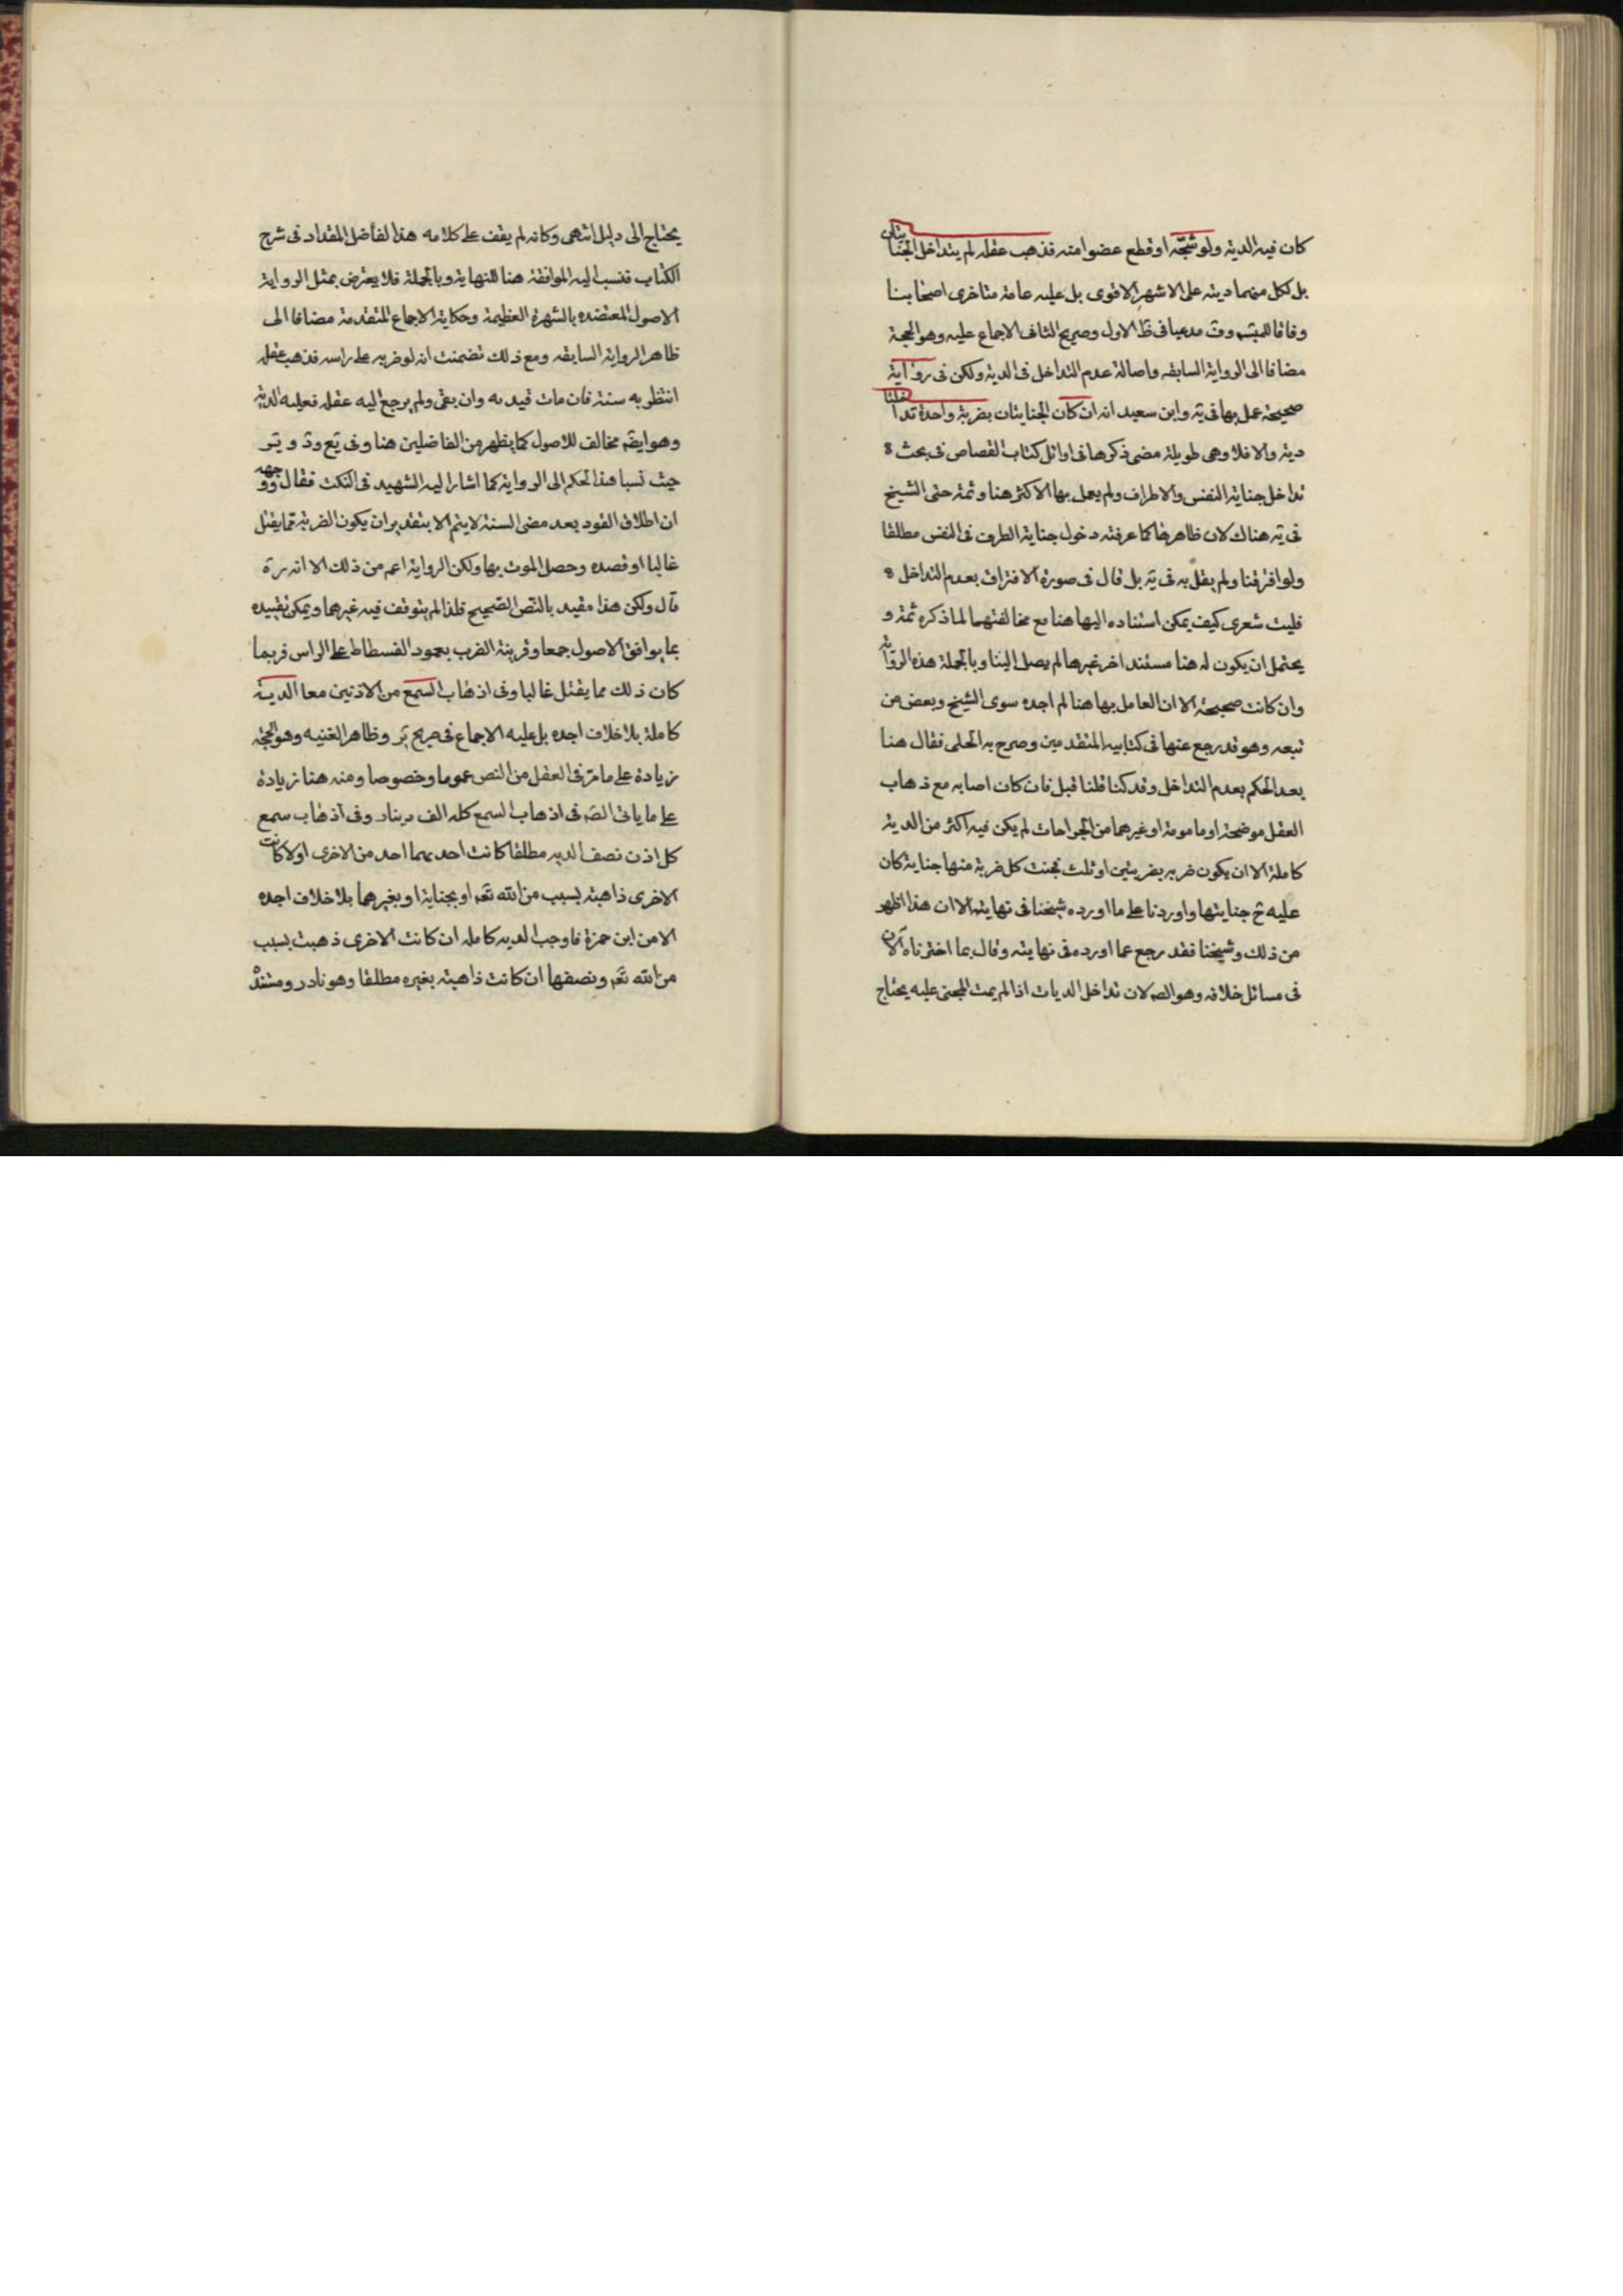 كان فيه الدية ولو شجّه او قطع عضوا منه فذهب عقله لم يتداخل الجنايتان
بل لكل منهما ديته على الاشهر الاقوى بل عليه عامة متاخرى اصحابنا
وفاقا للمبسوط وف مدعيا فى ظ الاول وصريح الثانى الاجماع عليه وهو الحجة
مضافا الى الرواية السابقه واصالة عدم التداخل فى الدية ولكن فى رواية
صحيحة عمل بها فى ية وابن سعيد انه ان كان الجنايتان بضربة واحدة تداخلتا
دية والا فلا وهى طويلة مضى ذكرها فى اوائل كتاب القصاص فى بحث
تداخل جناية النفس والاطراف ولم يعمل بها الاكثر هنا وثمة حتى الشيخ
فى ية هناك لان ظاهرها كما عرفته دخول جناية الطرف فى النفس مطلقا
ولو افترقنا ولم يقل به فى ية بل قال فى صورة الافتراق بعدم التداخل
فليت شعرى كيف يمكن استناده اليها هنا مع مخالفتهما لما ذكره ثمة و
يحتمل ان يكون له هنا مستند اخر غيرها لم يصل الينا وبالجملة هذه الرواية
وان كانت صحيحة الا ان العامل بها هنا لم اجده سوى الشيخ وبعض من
تبعه وهو قد رجع عنها فى كتابيه المتقدمين وصرح به الحلى فقال هنا
بعد الحكم بعدم التداخل وقد كنا قلنا قبل فان كان اصابه مع ذهاب
العقل موضحة او مامومة او غيرهما من الجراحات لم يكن فيه اكثر من الدية
كاملة الا ان يكون ضربه بضربتين او ثلث فجنت كل ضربة منها جناية كان
عليه ح جنايتها واوردنا على ما اورده شيخنا فى نهايته الا ان هذا اظهر
من ذلك وشيخنا فقد رجع عما اورده فى نهايته وقال بما اخترناه الآن
فى مسائل خلافه وهو الصـ لان تداخل الديات اذا لم يمت المجنى عليه يحتاج
يحتاج الى دليل انتهى وكانه لم يقف على كلامه هذا الفاضل المقداد فى شرح
الكتاب فنسب اليه الموافقة هنا للنهاية وبالجملة فلا يعترض بمثل الرواية
الاصول المعتضده بالشهرة العظيمة وحكاية الاجماع المتقدمة مضافا الى
ظاهر الرواية السابقه ومع ذلك تضمنت انه لو ضربه على راسه فذهب عقله
انتظر به سنة فان مات قيد به وان بقى ولم يرجع اليه عقله فعليه الدية
وهو ايضـ مخالف للاصول كما يظهر من الفاضلين هنا وفى يع ود و ير
حيث نسبا هذا الحكم الى الرواية كما اشار اليه الشهيد فى النكت فقال ووجهه
ان اطلاق القود بعد مضى السنة لا يتم الا بتقدير ان يكون الضربة مما يقتل
غالبا او قصده وحصل الموت بها ولكن الرواية اعم من ذلك الا انه رة
قال ولكن هذا مقيد بالنص الصحيح فلذا لم يتوقف فيه غيرهما ويمكن تقييده
بما يوافق الاصول جمعا وقرينة الضرب بعمود الفسطاط على الراس فربما
كان ذلك مما يقتل غالبا وفى اذهاب السمع من الاذنين معا الدية
كاملة بلا خلاف اجده بل عليه الاجماع فى صريح ير وظاهر الغنيه وهو الحجّة
زيادة على ما مرّ فى العقل من النص عموما وخصوصا ومنه هنا زيادة
على ما ياتى الصـ فى اذهاب السمع كله الف دينار وفى اذهاب سمع
كل اذن نصف الديه مطلقا كانت احديهما احد من الاخرى او لا كانت
الاخرى ذاهبة بسبب من الله تعـ او بجناية او بغيرهما بلا خلاف اجده
الا من ابن حمزة فاوجب الديه كامله ان كانت الاخرى ذهبت بسبب
من الله تعـ ونصفها ان كانت ذاهبة بغيره مطلقا وهو نادر ومستنده